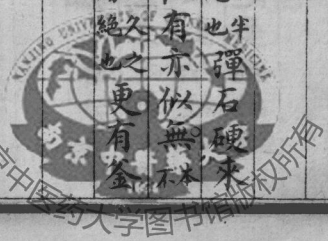 半
也
彈石硬來
有亦似無
本
不
久之
絕也
更有釜
京中医药大学图书馆版权所有
南京中